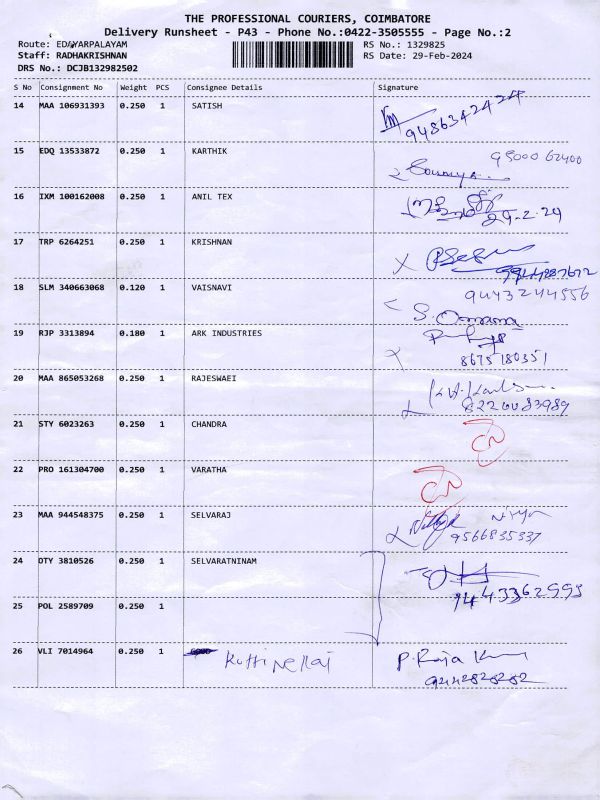 THE PROFESSIONAL COURIERS, COIMBATORE
Delivery Runsheet - P43 - Phone No.:0422-3505555 - Page No.:2
Route: EDAYARPALAYAM RS No.: 1329825
Staff: RADHAKRISHNAN RS Date: 29-Feb-2024
DRS No.: DCJB132982502
S No Consignment No Weight PCS Consignee Details Signature
14 MAA 106931393 0.250 1 SATISH
9486342424
15 EDQ 13533872 0.250 1 KARTHIK 95000 62400
Soumya
16 IXM 100162008 0.250 1 ANIL TEX
29-2-24
17 TRP 6264251 0.250 1 KRISHNAN
9944287672
18 SLM 340663068 0.120 1 VAISNAVI 9443244556
S. Omana
19 RJP 3313894 0.180 1 ARK INDUSTRIES
8675180351
20 MAA 865053268 0.250 1 RAJESWAEI
8220083989
21 STY 6023263 0.250 1 CHANDRA
22 PRO 161304700 0.250 1 VARATHA
23 MAA 944548375 0.250 1 SELVARAJ
9566835337
24 OTY 3810526 0.250 1 SELVARATNINAM
9443362993
25 POL 2589709 0.250 1
26 VLI 7014964 0.250 1 P. Raja
9442828282